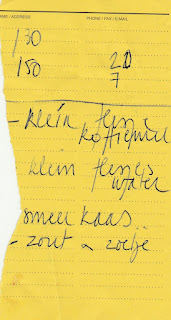 NAME / ADDRESS PHONE / FAX / E.MAIL
130
180 20
7
- klein flesje
koffiemelk
klein flesjes
water
smeer kaas..
- zout & zoetje